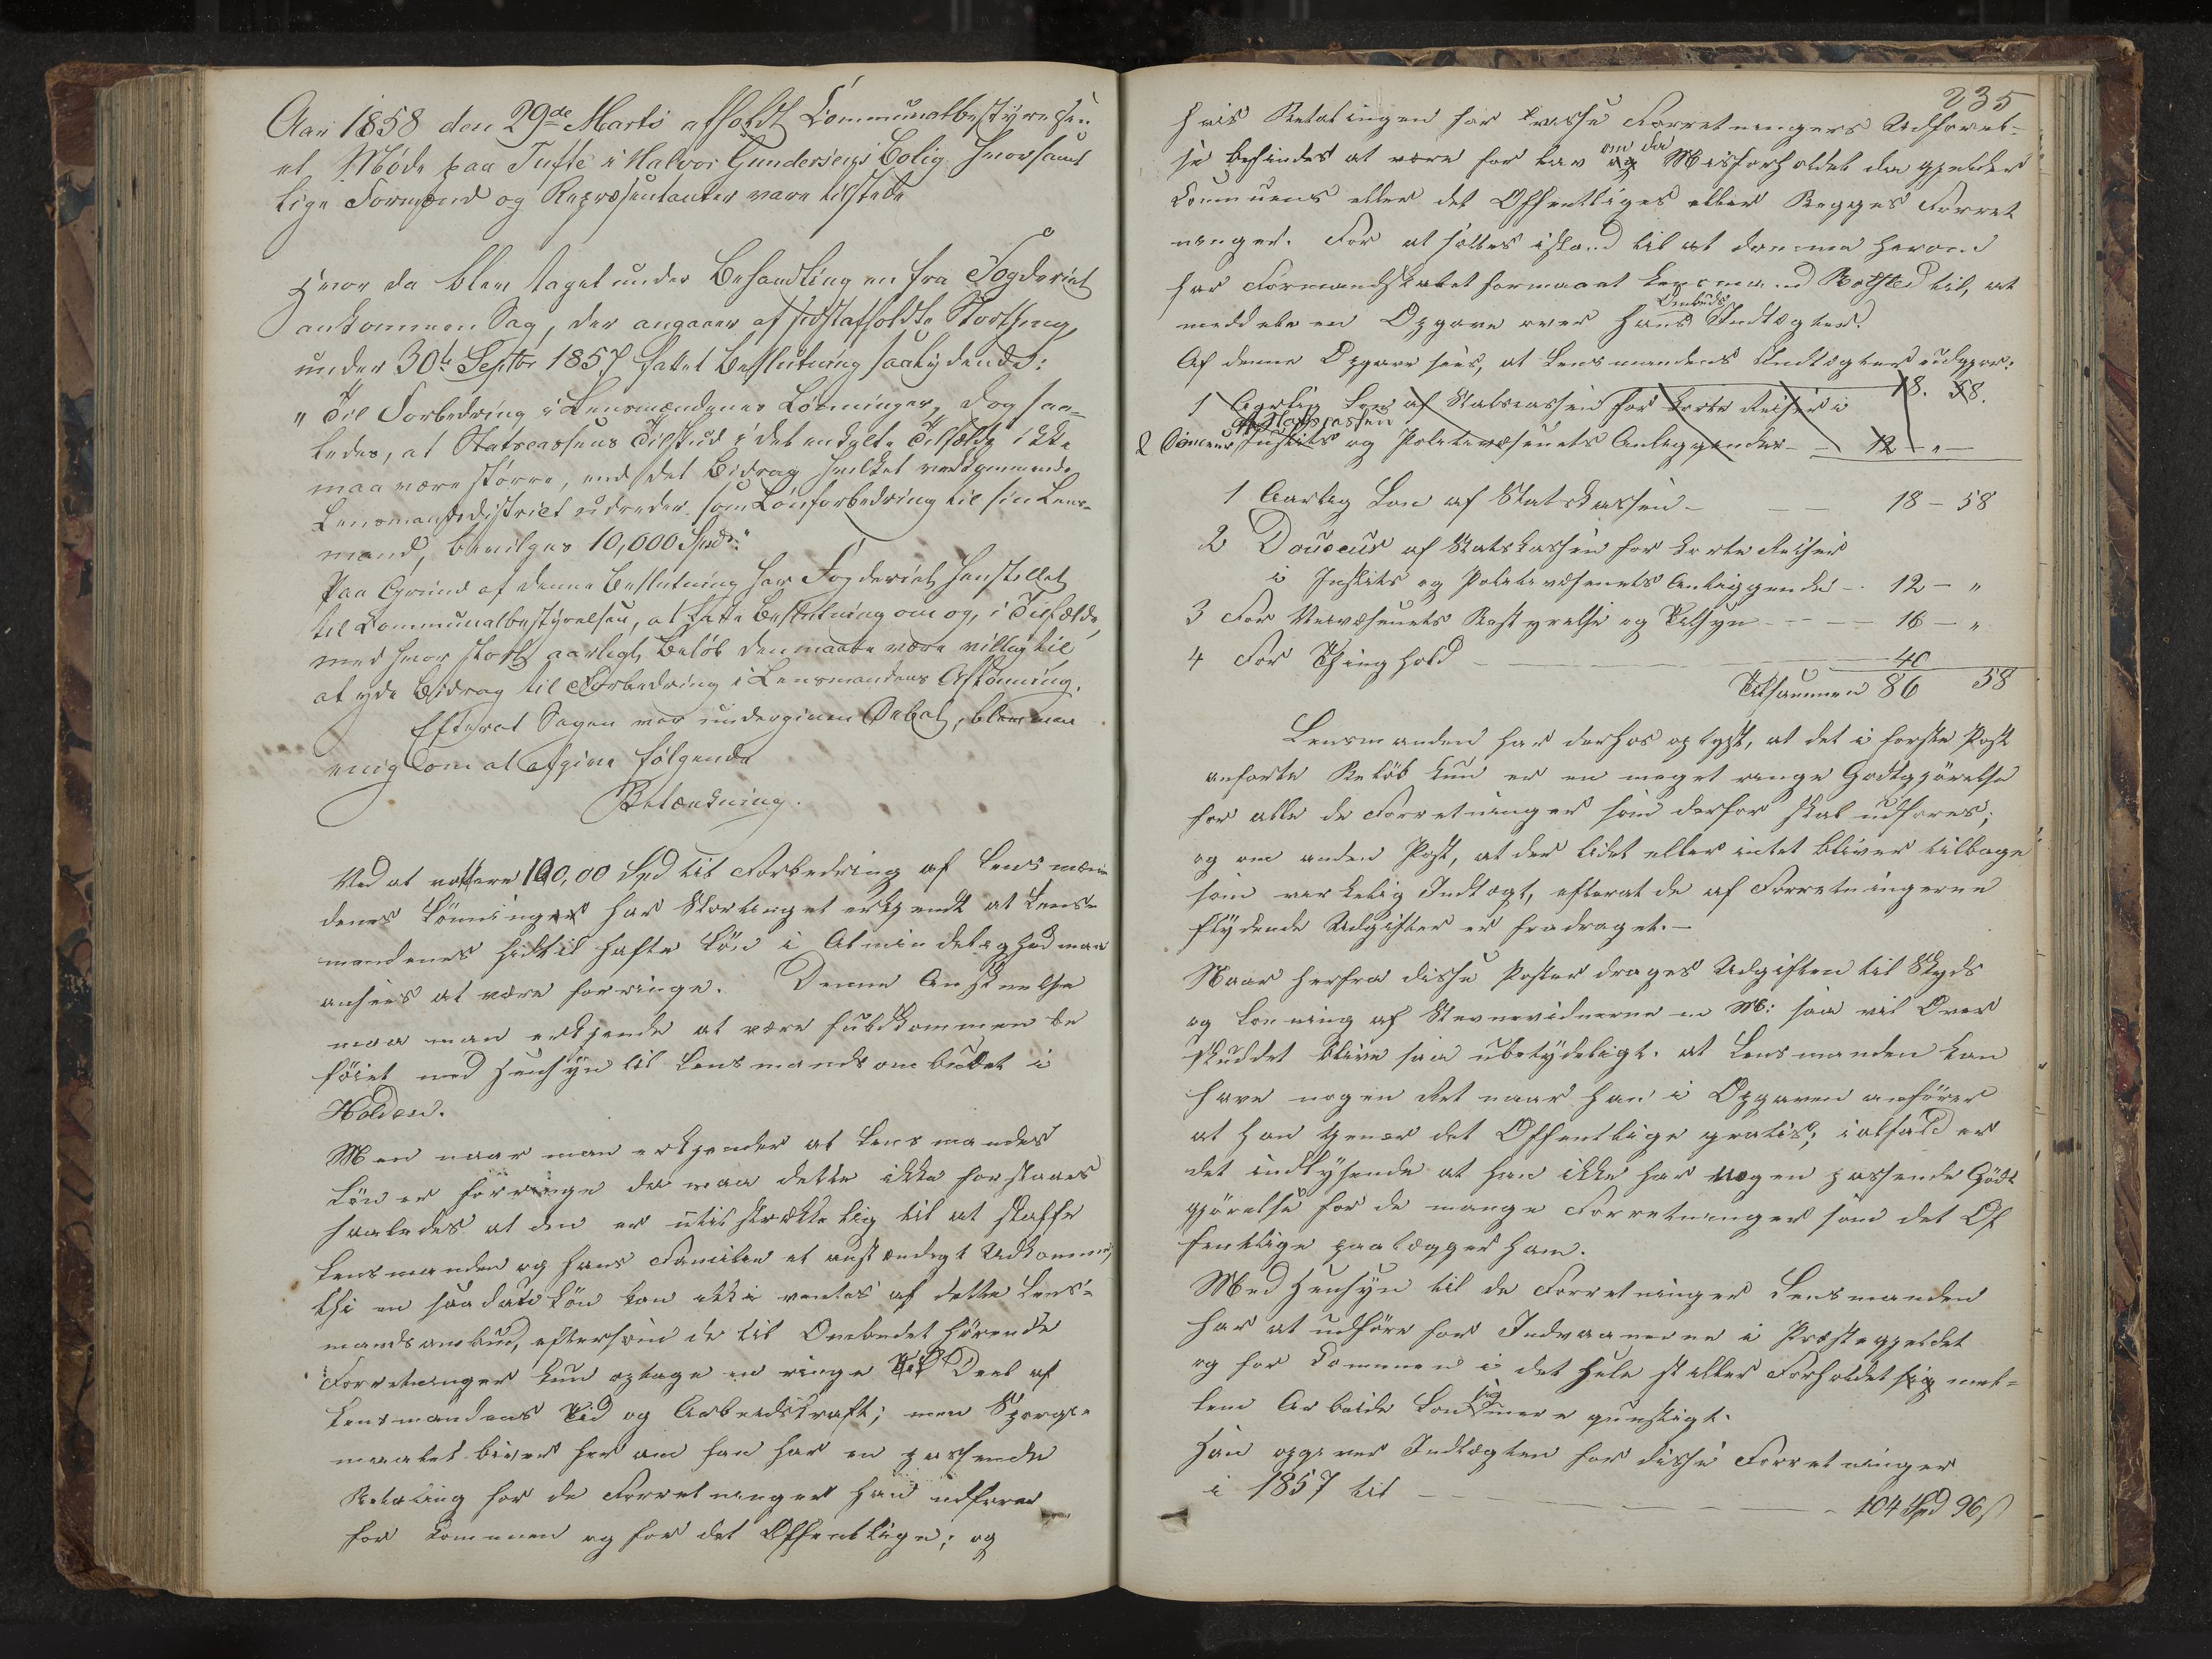 Aar 1858 den 29de Marts afholdt Communalbestyrelsen
et Møde paa Tufte i Halvor Gundersens Bolig hvor samt
lige Formænd og Repræsentanter vare tilstede
Hvor da blev taget under Behandling en fra Fogderiet
ankommen Sag, der angaaer af sidstafholdte Storthing,
under 30te Septbr 1857 fattet Beslutning saalydende:
"Til Forbedring i Lensmændenes Lønninger, dog saa-
ledes, at Statscassens Tilskud i det enkelte Tilfælde ikke
maa være større, end det Bidrag hvilket vedkommende
Lensmandsdistrict udreder som Lønforbedring til sin Lens-
mand, bevilges 10,000 Spdr."
Paa Grund af denne Beslutning har Fogderiet henstillet
til Communalbestyrelsen, at fatte Beslutning om og, i Tilfælde,
med hvor stort aarligt Beløb den maatte være villig til
at yde Bidrag til Forbedring i Lensmandens Aflønning.
Efterat Sagen var undergiven Debat, blev man
enig om at afgive følgende
Betænkning.
Ved at votere 100,00 Spd til Forbedring af Lensmæn
denes Lønninger har Stortinget erkjendt at Lens-
mændenes hidtil hafte Løn i Almindelighed maa
ansees at være for ringe. Denne Anskuelse
maa man erkjende at være fuldkommen be
føiet med Hensyn til Lensmandsombudet i
Holden.
Men naar man erkjender at Lensmandens
Løn er for ringe da maa dette ikke forstaaes
saaledes at den er utilstrækkelig til at skaffe
Lensmanden og hans Familie et anstændigt Udkomme,
thi en saadan Løn kan ikke ventes af dette Lens-
mandsombud, eftersom de til Ombudet hørende
Forretninger kun optage en ringe Deel af
Lensmandens Tid og Arbeidskraft; men Spørgs-
maalet bliver her om han har en passende
Betaling for de Forretninger han udfører
for Communen og for det Offentlige; og
235
hvis Betalingen for disse Forretningers Udførel-
se befindes at være for lav om da og Misforholdet da gjelder
Communens eller det Offentliges eller Begges Forret
ninger. For at sættes istand til at dømme herom
har Formandskabet formaaet Lensmand Rolsted til, at
meddele en Opgave over hans Ombuds Indtægter.
Af denne Opgave sees, at Lensmandens Indtægter udgjør:
1 Aarlig Løn af Statscassen for korte Reiser i 18. 58.
af Statscassen
2 Douceur Justits og Politivæsenets Anliggender - - 12 - " -
1 Aarlig Løn af Statskassen - - - 18 - 58
2 Douceur af Statskassen for korte Reiser
i Justits og Politivæsenets Anliggender - 12 - "
3 For Veivæsenets Bestyrelse og Tilsyn - - - - 16 - "
4 For Thinghold - - - 40
Tilsammen 86 58
Lensmanden har derhos oplyst, at det i første Post
anførte Beløb kun er en meget ringe Godtgjørelse
for alle de Forretninger som derfor skal udføres;
og om anden Post, at der lidet eller intet bliver tilbage
som virkelig Indtægt, efterat de af Forretningerne
flydende Udgifter er fradraget. -
Naar herfra disse Poster drages Udgiften til Skyds
og Lønning af Stevnevidnerne m M: saa vil Over
skuddet blive saa ubetydeligt. at Lensmanden kan
have nogen Ret naar han i Opgaven anfører
at han tjener det Offentlige gratis; ialfald er
det indlysende at han ikke har nogen passende Godt
gjørelse for de mange Forretninger som det Of
fentlige paalægger ham.
Med Hensyn til de Forretninger Lensmanden
har at udføre for Indvaanerne i Præstegjeldet
og for Communen i det Hele stiller Forholdet sig mel-
lem Arbeide Løn sig mere gunstigt.
Han opgiver Indtægten for disse Forretninger
i 1857 til - - - - - - - 104 Spd 96 s